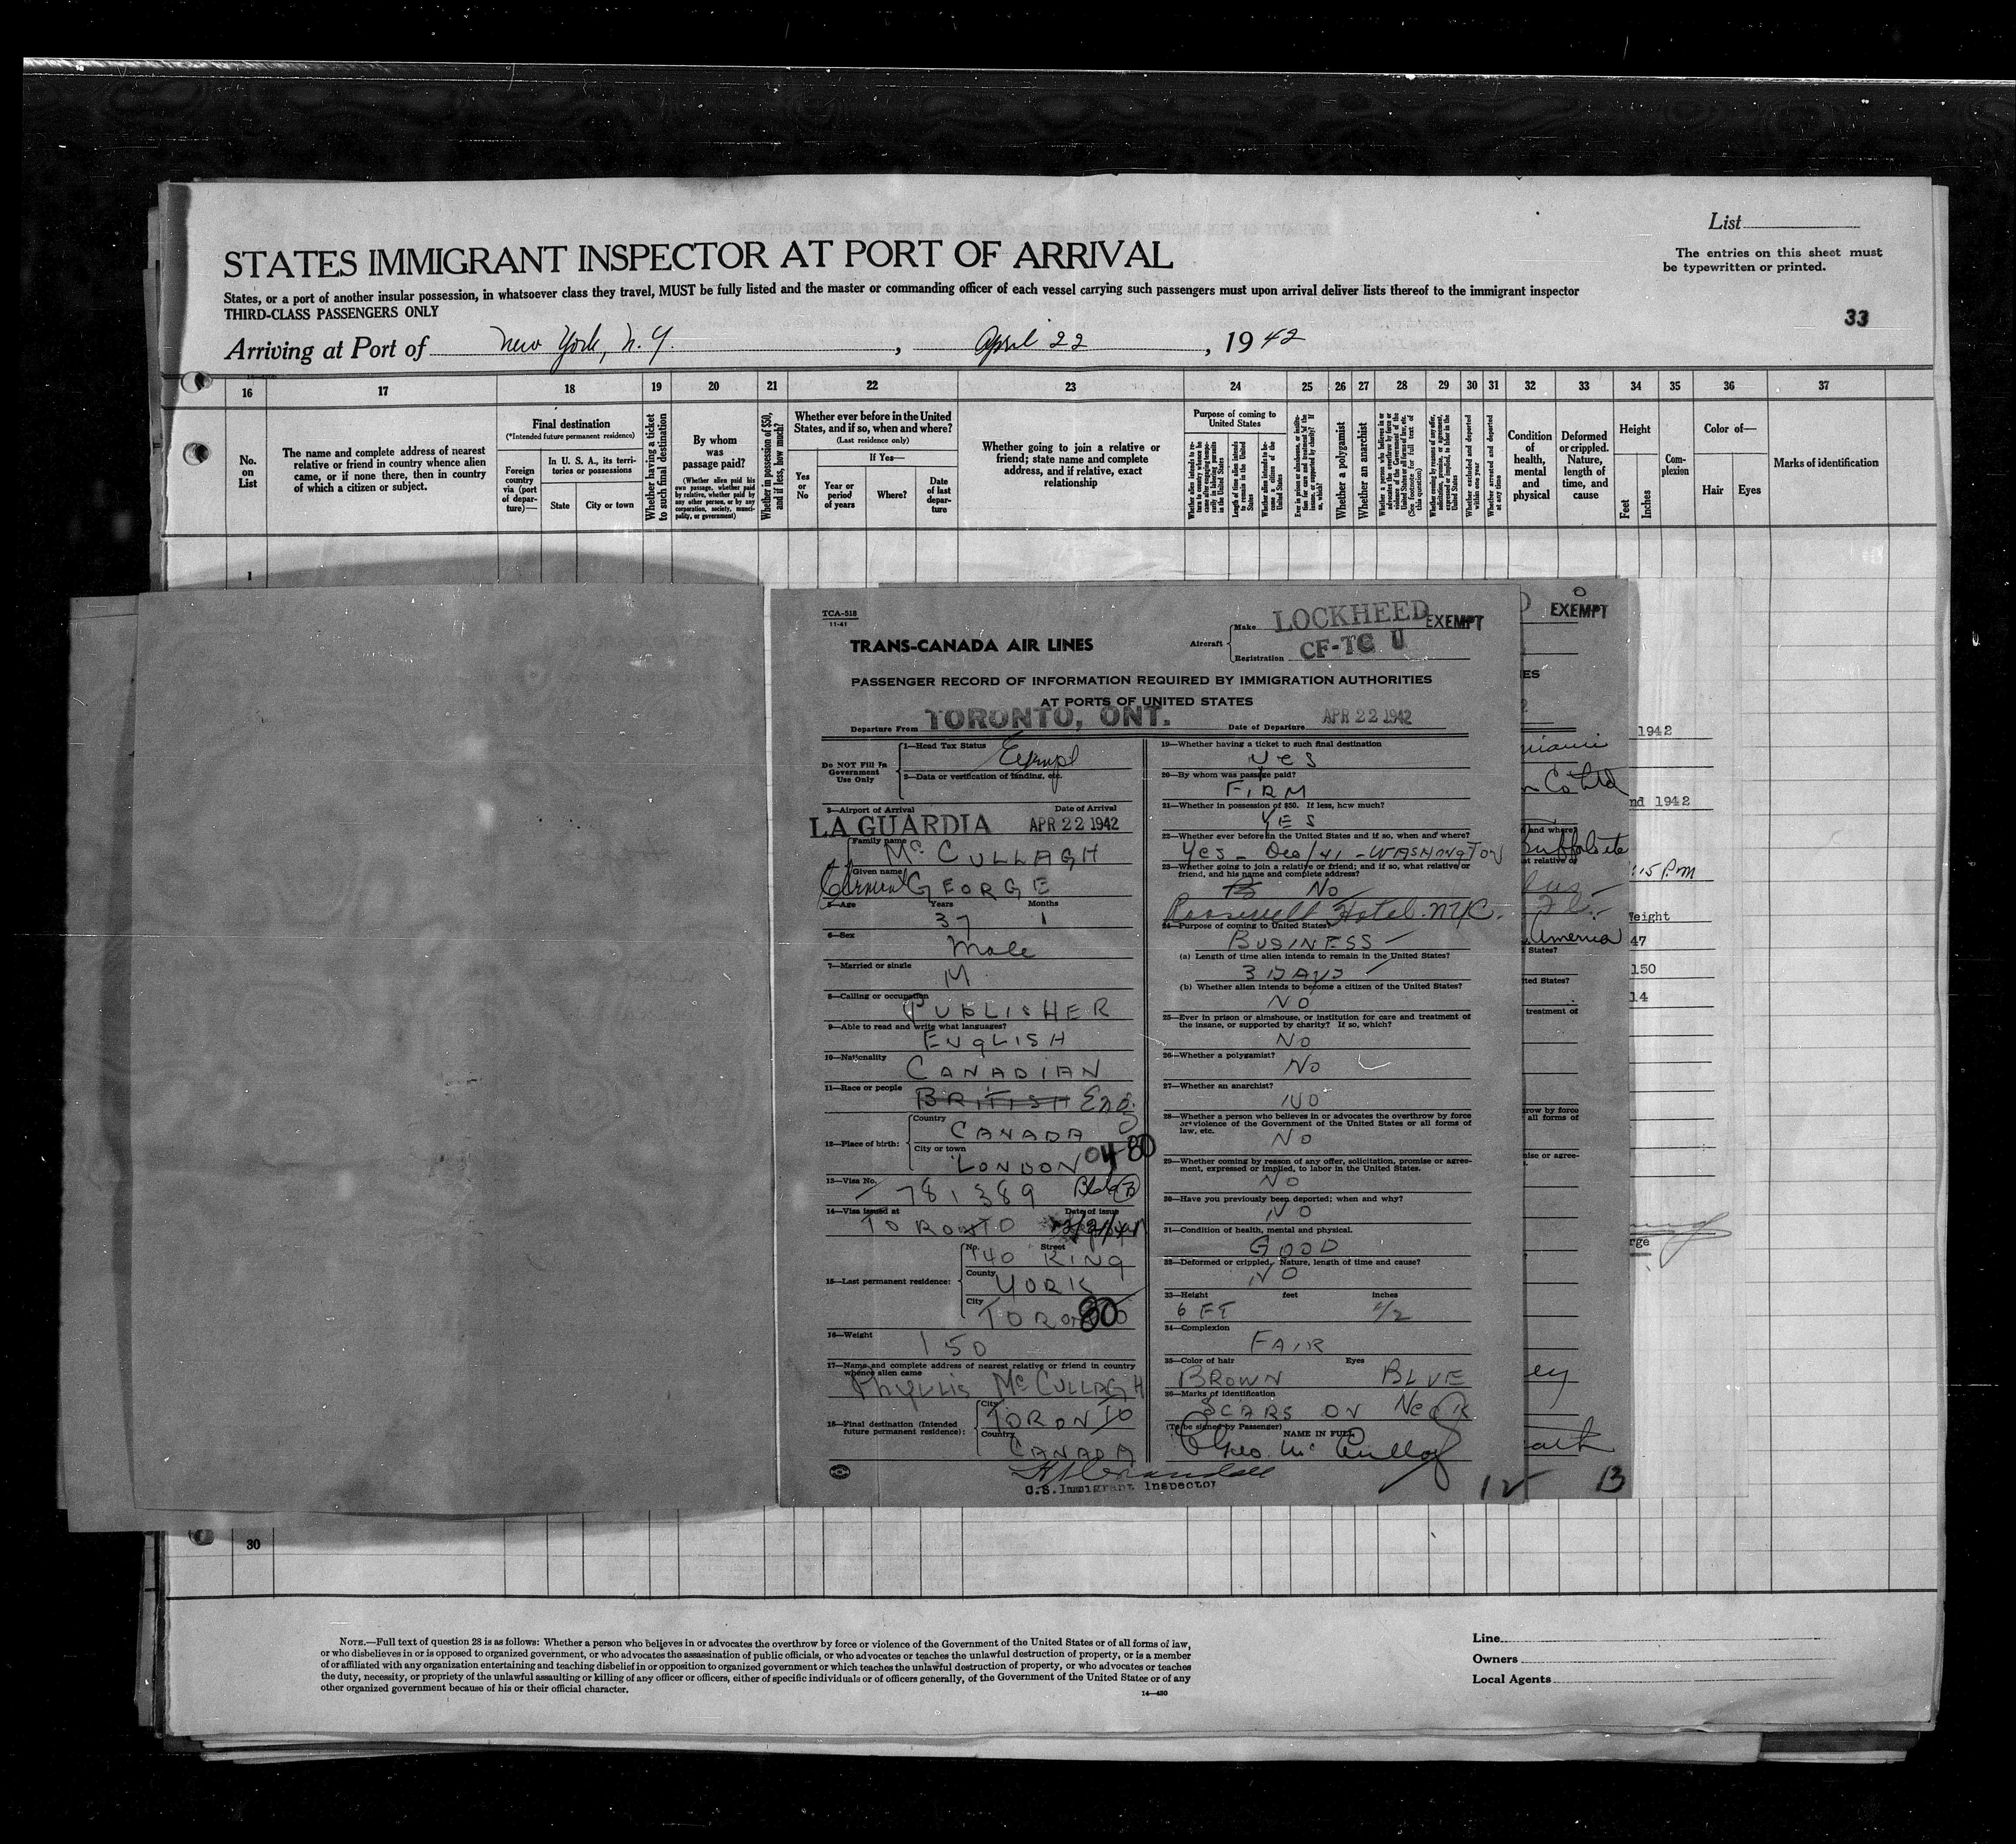 List
The entries on this sheet must
be typewritten or printed.
STATES IMMIGRANT INSPECTOR AT PORT OF ARRIVAL
States, or a port of another insular possession, in whatsoever class they travel, MUST be fully listed and the master or commanding officer of each vessel carrying such passengers must upon arrival deliver lists thereof to the immigrant inspector
THIRD-CLASS PASSENGERS ONLY
33
Arriving at Port of New York, N.Y., April 22, 1942
16 17 18 19 20 21 22 23 24 25 26 27 28 29 30 31 32 33 34 35 36 37
No. on List
The name and complete address of nearest relative or friend in country whence alien came, or if none there, then in country of which a citizen or subject.
Final destination
(*Intended future permanent residence)
Foreign country via (port of departure)—
In U. S. A., its territories or possessions
State
City or town
Whether having a ticket to such final destination
By whom was passage paid?
(Whether alien paid his own passage, whether paid by relative, whether paid by any other person, or by any corporation, society, municipality, or government)
Whether in possession of $50, and if less, how much?
Whether ever before in the United States, and if so, when and where?
(Last residence only)
Yes or No
If Yes—
Year or period of years
Where?
Date of last departure
Whether going to join a relative or friend; state name and complete address, and if relative, exact relationship
Purpose of coming to United States
Whether a polygamist
Whether an anarchist
Whether excluded and deported within one year
Whether arrested and deported at any time
Condition of health, mental and physical
Deformed or crippled. Nature, length of time, and cause
Height
Feet
Inches
Complexion
Color of—
Hair
Eyes
Marks of identification
1
TCA-518
11-41
TRANS-CANADA AIR LINES
Aircraft
Make LOCKHEED EXEMPT
Registration CF-TC U
PASSENGER RECORD OF INFORMATION REQUIRED BY IMMIGRATION AUTHORITIES
AT PORTS OF UNITED STATES
Departure From TORONTO, ONT. Date of Departure APR 22 1942
Do NOT Fill In Government Use Only
1—Head Tax Status Exempt
2—Data or verification of landing, etc.
3—Airport of Arrival Date of Arrival
LA GUARDIA APR 22 1942
Family name
McCULLAGH
Given name
GEORGE
5—Age Years Months
37 1
6—Sex
Male
7—Married or single
M
8—Calling or occupation
PUBLISHER
9—Able to read and write what languages?
ENGLISH
10—Nationality
CANADIAN
11—Race or people BRITISH Eng.
12—Place of birth:
Country
CANADA
City or town
LONDON 04 80
13—Visa No.
781389
14—Visa issued at Date of issue
TORONTO
15—Last permanent residence:
No. Street
140 KING
County
YORK
City
TORONTO 80
16—Weight
150
17—Name and complete address of nearest relative or friend in country
whence alien came
Phyllis McCULLAGH
18—Final destination (Intended
future permanent residence):
City
TORONTO
Country
CANADA
19—Whether having a ticket to such final destination
YES
20—By whom was passage paid?
FIRM
21—Whether in possession of $50. If less, how much?
YES
22—Whether ever before in the United States and if so, when and where?
Yes - Dec/41 - WASHINGTON
23—Whether going to join a relative or friend; and if so, what relative or
friend, and his name and complete address?
No
Roosevelt Hotel. NYC.
24—Purpose of coming to United States?
BUSINESS
(a) Length of time alien intends to remain in the United States?
3 DAYS
(b) Whether alien intends to become a citizen of the United States?
NO
25—Ever in prison or almshouse, or institution for care and treatment of
the insane, or supported by charity? If so, which?
NO
26—Whether a polygamist?
No
27—Whether an anarchist?
NO
28—Whether a person who believes in or advocates the overthrow by force
or violence of the Government of the United States or all forms of
law, etc.
No
29—Whether coming by reason of any offer, solicitation, promise or agree-
ment, expressed or implied, to labor in the United States.
NO
30—Have you previously been deported; when and why?
NO
31—Condition of health, mental and physical.
GOOD
32—Deformed or crippled. Nature, length of time and cause?
NO
33—Height feet inches
6 FT 1/2
34—Complexion
FAIR
35—Color of hair Eyes
BROWN BLUE
36—Marks of identification
SCARS ON NECK
(To be signed by Passenger) NAME IN FULL
Geo. McCullagh
U.S. Immigrant Inspector
12
EXEMPT
13
1942
nd 1942
Weight
47
150
14
30
NOTE.—Full text of question 28 is as follows: Whether a person who believes in or advocates the overthrow by force or violence of the Government of the United States or of all forms of law,
or who disbelieves in or is opposed to organized government, or who advocates the assassination of public officials, or who advocates or teaches the unlawful destruction of property, or is a member
of or affiliated with any organization entertaining and teaching disbelief in or opposition to organized government or which teaches the unlawful destruction of property, or who advocates or teaches
the duty, necessity, or propriety of the unlawful assaulting or killing of any officer or officers, either of specific individuals or of officers generally, of the Government of the United States or of any
other organized government because of his or their official character.
14—430
Line
Owners
Local Agents